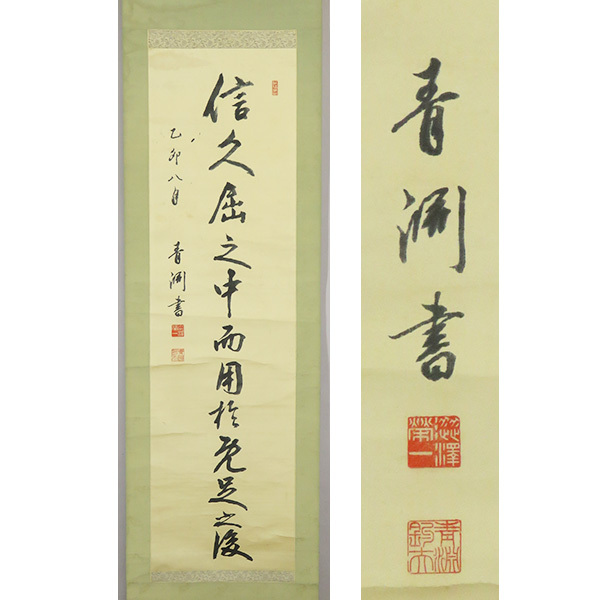 信久屈之中而用於既足之後
乙卯八月 青淵書
澁澤榮一
青淵書
澁澤榮一
青淵